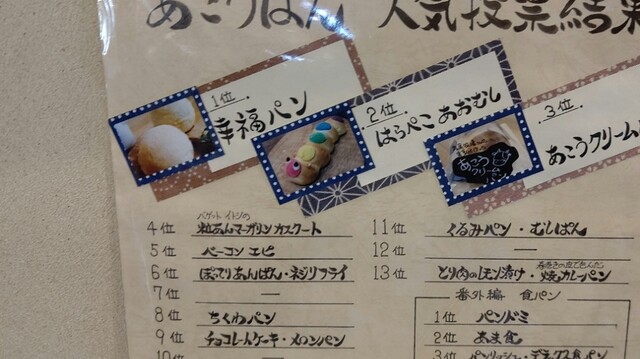 あこうぱん 人気投票結果
1位
幸福パン
2位
はらぺこ あおむし
3位
あこうクリーム
あこう
クリーム
パン
4位 バゲット イトジの 粒あんマーガリンカスクート
5位 ベーコン エピ
6位 ぽってりあんぱん・ネジリフライ
7位 ―
8位 ちくわパン
9位 チョコレートケーキ・メロンパン
10位
11位 くるみパン・むしぱん
12位 ―
13位 とり肉のレモン漬け・焼カレーパン
番外編 食パン
1位 パンドミ
2位 あま食
3位 パンリッシュ・デラックス食パン